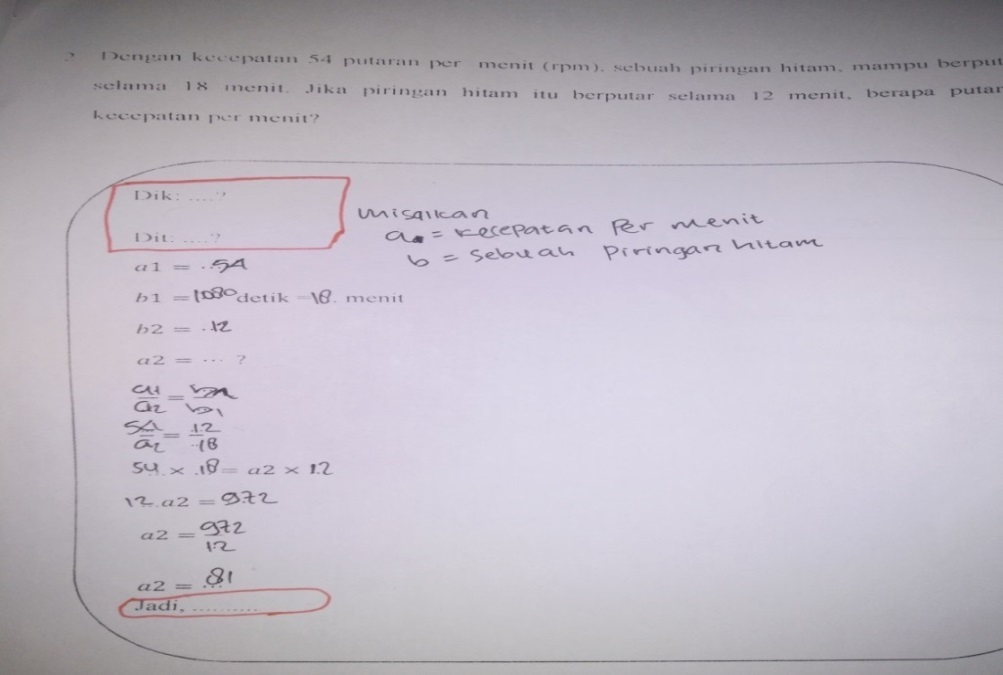 Dengan kecepatan 54 putaran per menit (rpm), sebuah piringan hitam, mampu berput
selama 18 menit. Jika piringan hitam itu berputar selama 12 menit, berapa putar
kecepatan per menit?
Dik: ....?
Dit: ....?
misalkan
a = kecepatan Per menit
b = Sebuah Piringan hitam
a1 = ..54
b1 = 1080 detik = 18. menit
b2 = .12
a2 = ... ?
a1/a2 = b2/b1
54/a2 = 12/18
54 × 18 = a2 × 12
12.a2 = 972
a2 = 972/12
a2 = 81
Jadi, ..........